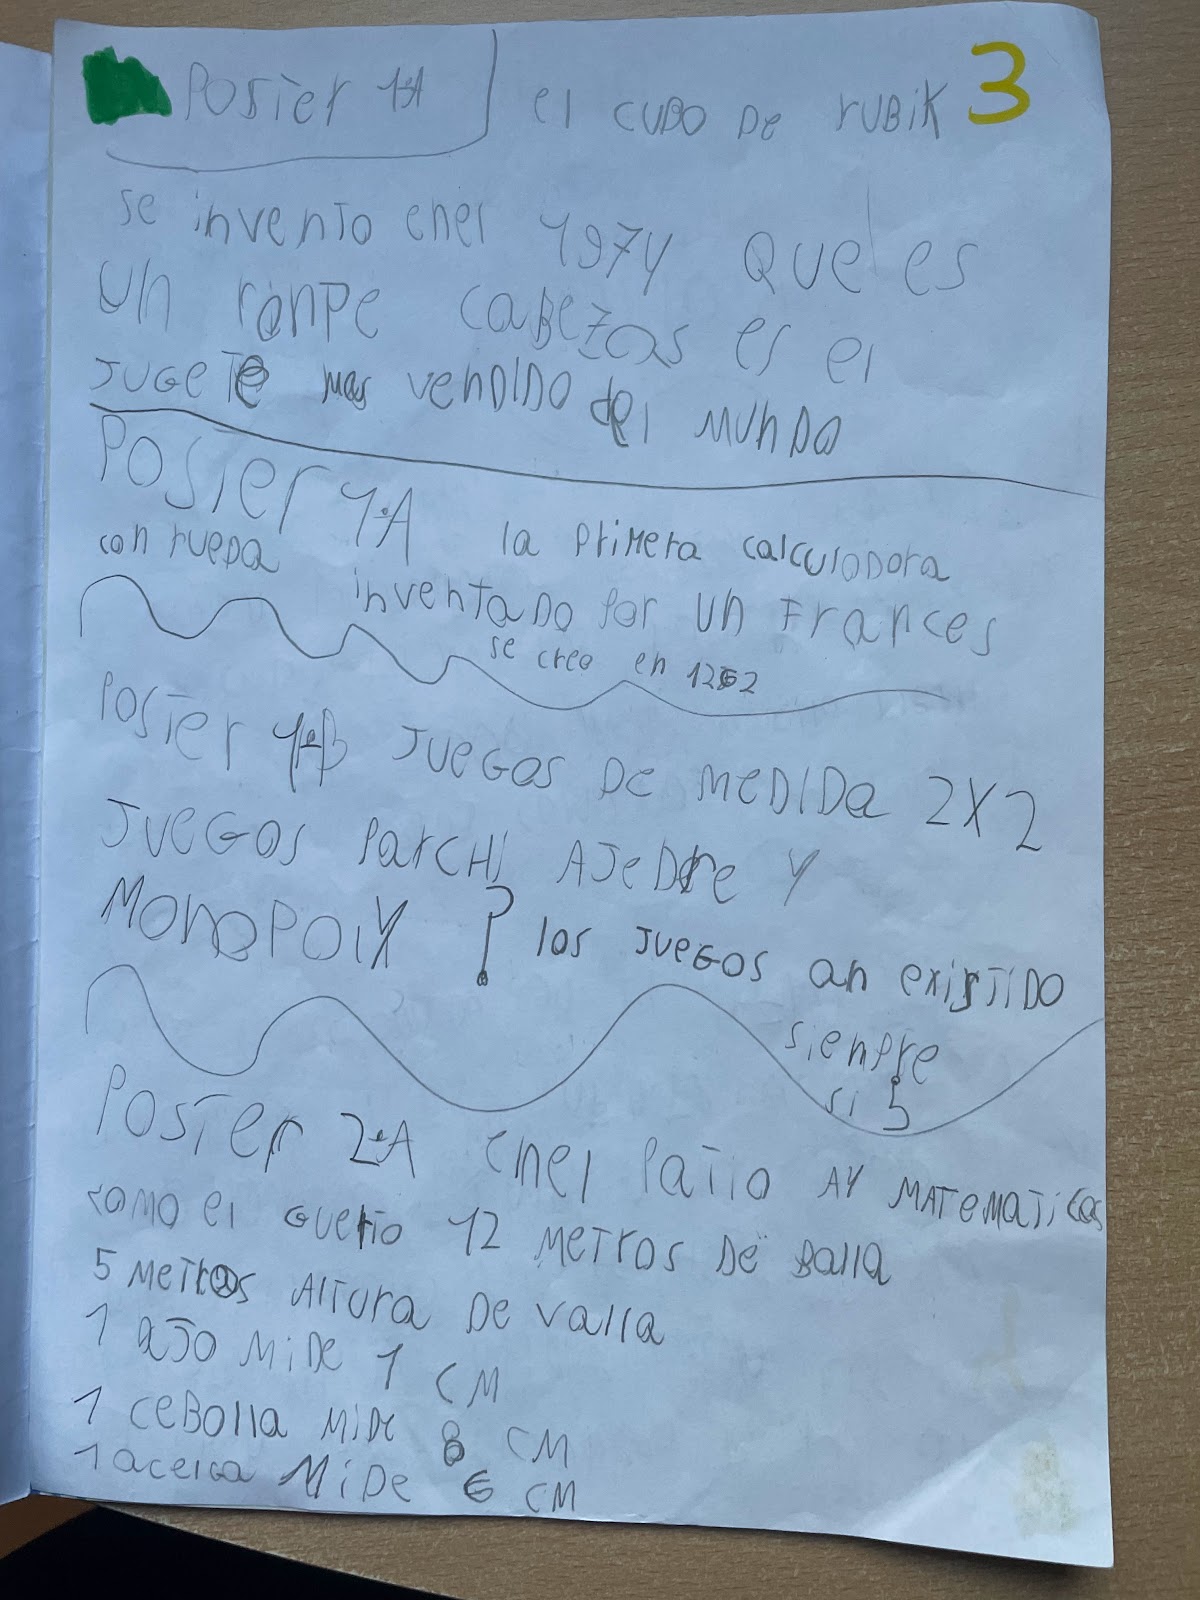 Poster 1ºA el cubo de rubik 3
se invento enel 1974 que es
un ronpe cabezas es el
jugete mas vendido del mundo
Poster 1ºA la primera calculadora
con rueda inventado por un Frances
se creo en 1262
Poster 1ºB juegos de medida 2x2
juegos parchi ajedre y
Monopoly ? los juegos an existido
sienpre
si
Poster 2ºA enel patio ay matematicas
como el guerto 12 metros de balla
5 metros altura de valla
1 ajo mide 1 cm
1 cebolla mide 8 cm
1 acelga mide 6 cm